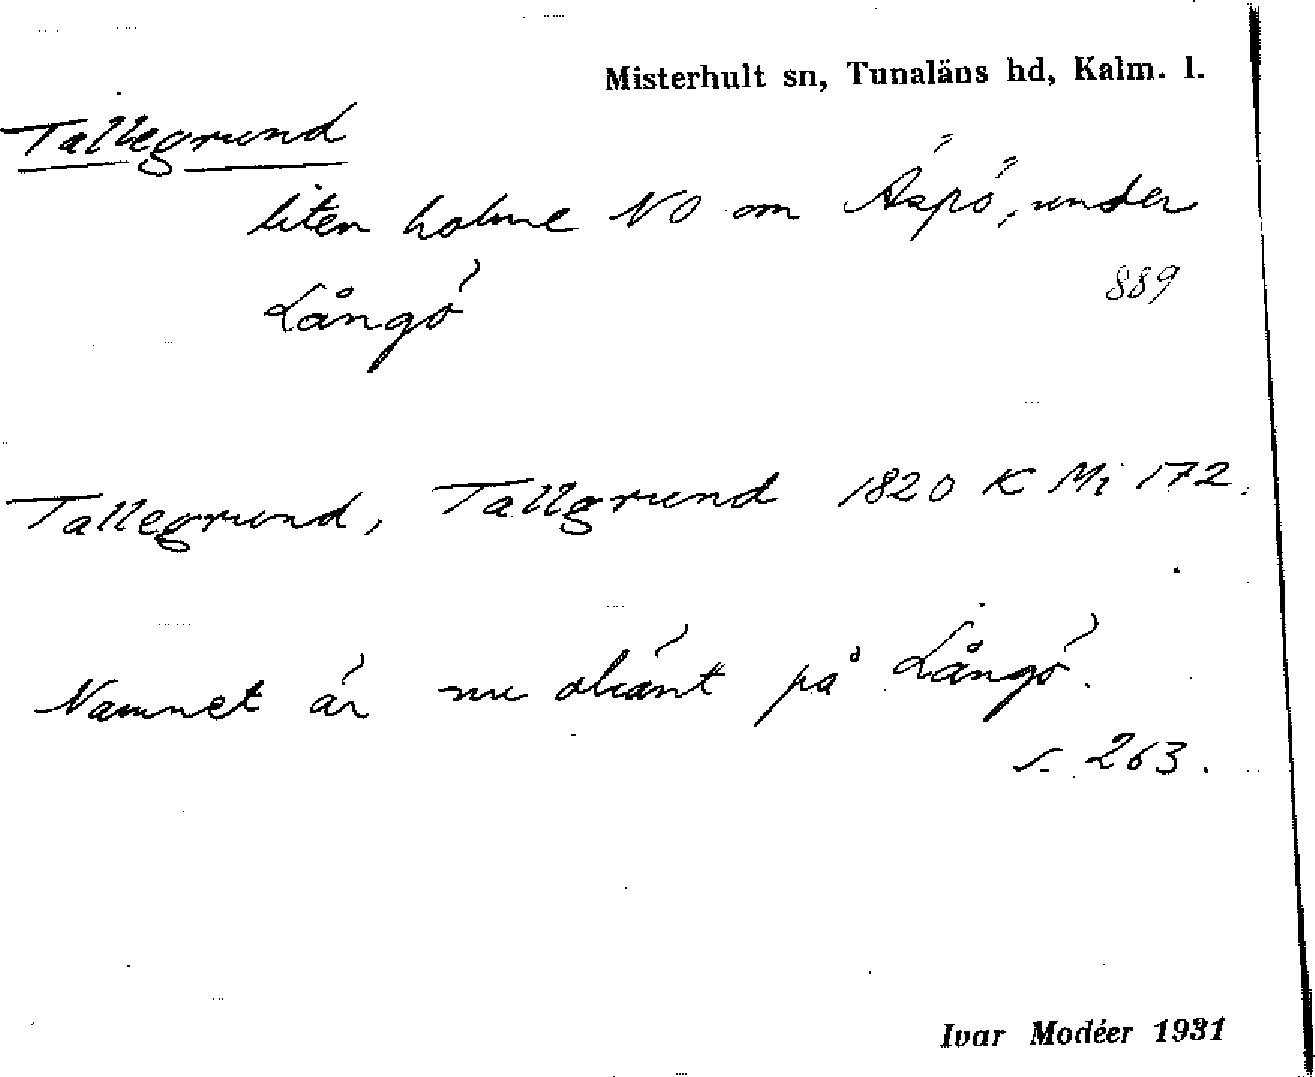 Misterhult sn, Tunaläns hd, Kalm. l.
Tallegrund
liten holme NO om Äspö, under
Långö
889
Tallegrund, Tallgrund 1820 K Mi 172.
Namnet är nu okänt på Långö.
s. 263.
Ivar Modéer 1931